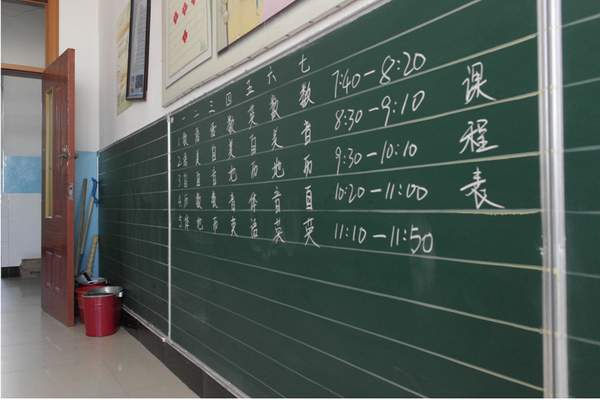 一 二 三 四 五 六 七
1 数 语 数 英 数 数 7:40—8:20
2 语 美 自 美 自 美 音 8:30—9:10
3 自 自 音 地 历 地 历 9:30—10:10
4 历 数 数 音 体 音 自 10:20—11:00
5 体 地 历 英 语 英 英 11:10—11:50
课程表